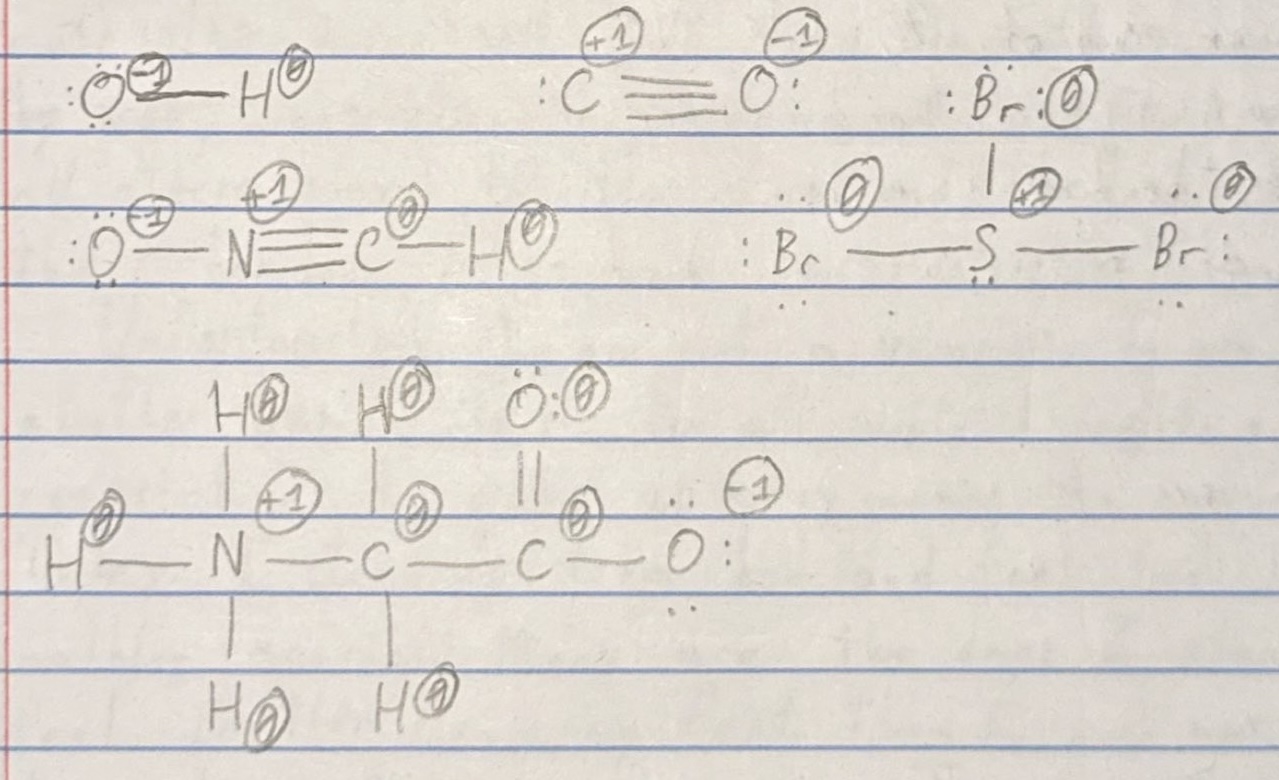 :Ö: ⊖1 — H ⓪ :C ≡ O: +1 -1 :Br: ⓪
:O: -1 — N +1 ≡ C 0 — H 0 :Br 0 — S +1 — Br: 0
H 0 H 0 O: 0
H 0 — N +1 — C 0 — C 0 — O: -1
H 0 H 0